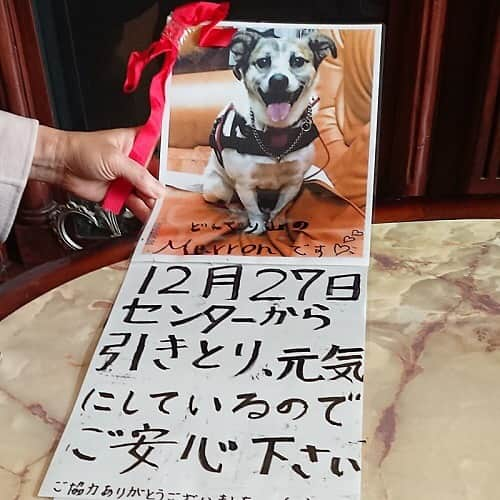 どんぐり山の
Merronです
12月27日
センターから
引きとり、元気
にしているので
ご安心下さい
ご協力ありがとうございました